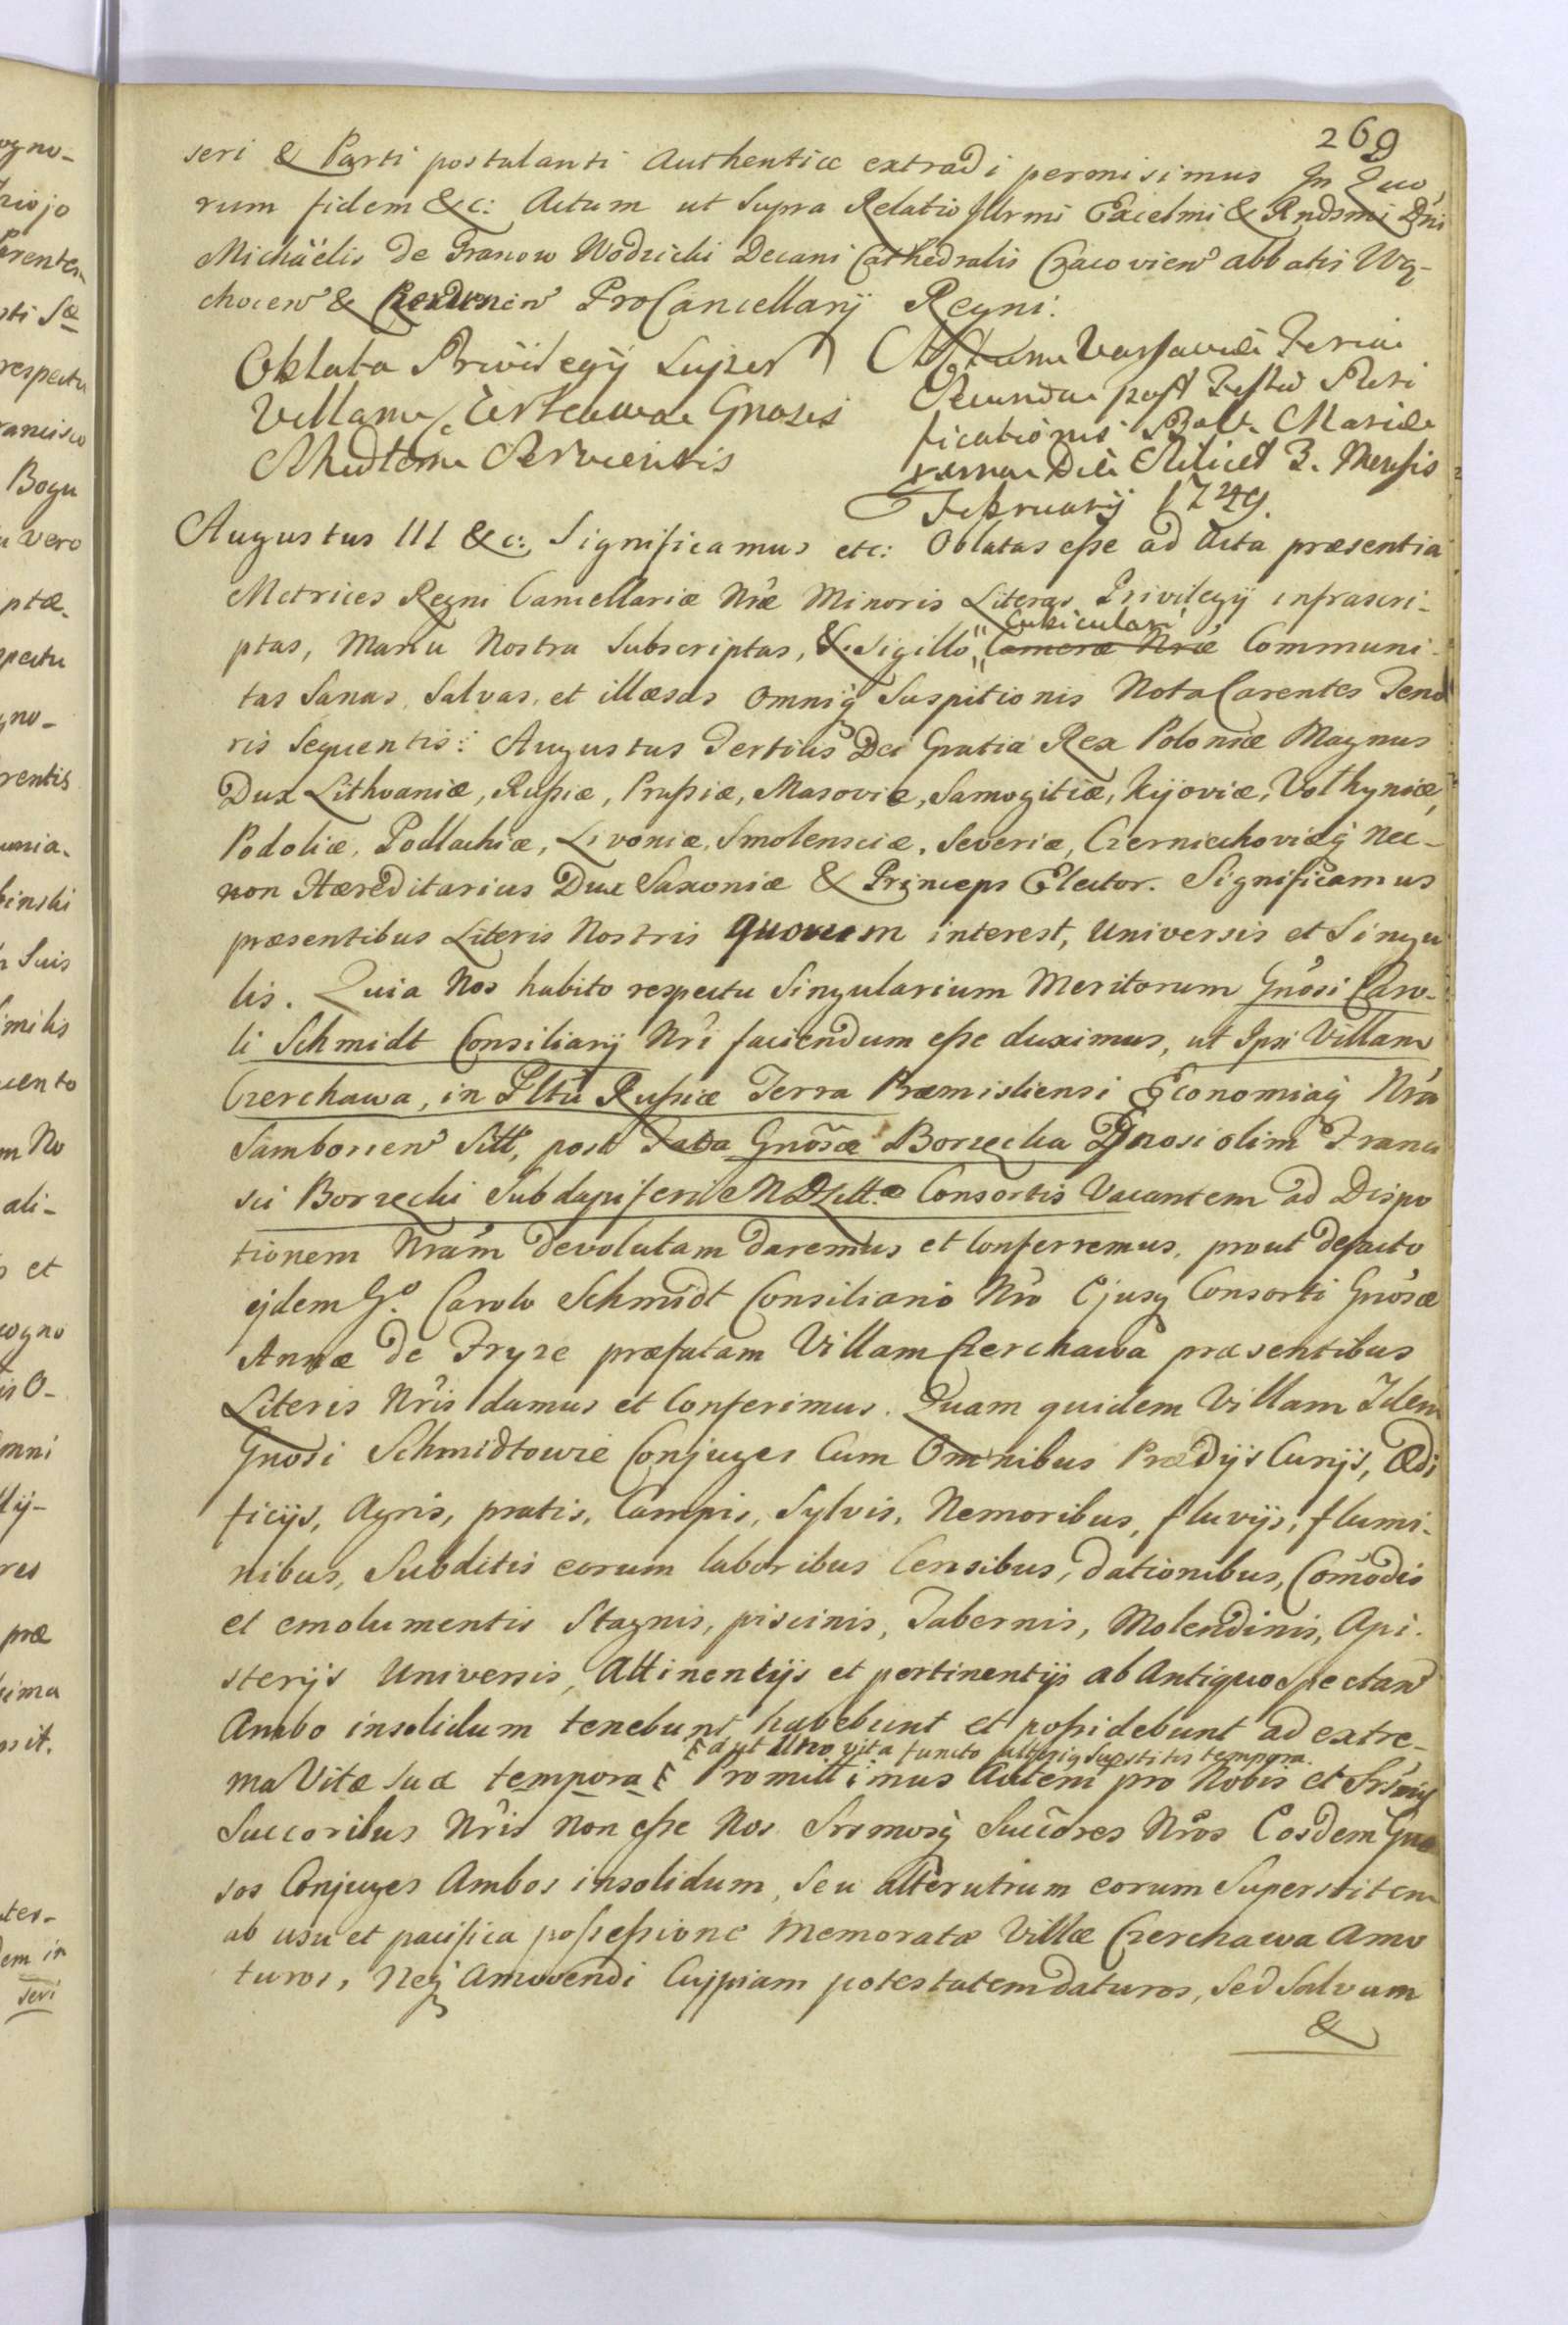 269
seri & Parti postulanti Authentice extradi permisimus In Quo
rum fidem &c: Actum ut supra Relatio Illrmi Excelmi & Rndsmi Dni
Michaëlis de Granow Wodzicki Decani Cathedralis Cracovien abbatis Wą-
chocen & ProCancellarij Regni.
Oblata Privilegij super
Villam Czerchawa Gnosis
Schmidtom Serviensis
Actum Varsaviæ Feria
Secunda post Festū Puri
ficationis Bæatæ Mariæ
Die Scilicet 3. Mensis
Februarij 1749.
Augustus III &c: Significamus etc: Oblatas esse ad Acta præsentia
Metrices Regni Cancellariæ Nræ Minoris Literas Privilegij infrascri-
ptas, Manu Nostra Subscriptas, & Sigillo Cubiculari Cameræ Nræ Communi-
tas Sanas, Salvas, et illæsas omniq Suspitionis Nota Carentes Teno
ris Sequentis: Augustus Tertius Dei Gratia Rex Poloniæ Magnus
Dux Lithvaniæ, Russiæ, Prussiæ, Masoviæ, Samogitiæ, Kijoviæ, Volhyniæ,
Podoliæ, Podlachiæ, Livoniæ, Smolensciæ, Severiæ, Czerniechoviæq nec-
non Hæreditarius Dux Saxoniæ & Princeps Elector. Significamus
præsentibus Literis Nostris quorum interest, Universis et Singu
lis. Quia Nos habito respectu Singularium Meritorum Gnosi Caro-
li Schmidt Consiliarij Nri faciendum esse duximus, ut Ipsi Villam
Czerchawa, in Pltū Russiæ Terra Præmisliensi Economiaq Nra
Samborien Sitt, post Fata Gnosæ Borzęcka Gnosi olim Franci
sci Borzęcki Subdapiferi MDLittæ Consortis Vacantem ad Dispo
tionem Nram devolutam daremus et Conferremus, prout defacto
ejdem Go. Carolo Schmidt Consiliario Nro Ejusq Consorti Gnosæ
Annæ de Fryze præfatam Villam Czerchawa præsentibus
Literis Nris damus et Conferimus. Quam quidem Villam Idem
Gnosi Schmidtowie Conjuges Cum Omnibus Prædijs Curijs, Ædi
ficijs, Agris, pratis, Campis, Sylvis, Nemoribus, fluvijs, flumi-
nibus, Subditis eorum laboribus Censibus, dationibus, Comodis
et emolumentis Stagnis, piscinis, Tabernis, Molendinis, Api-
sterijs Universis, Attinentijs et pertinentijs ab Antiquo Spectan
Ambo insolidum tenebunt, habebunt et possidebunt ad extre-
aut Uno vita functo alteriq Supstitis tempora.
ma Vitæ suæ tempora Promittimus Autem pro Nobis et Srsmis
Succoribus Nris non esse Nos Srsmosq Succores Nros Eosdem Gno
sos Conjuges Ambos insolidum, Seu alterutrum eorum Superstitem
ab usu et pacifica possessione Memoratæ Villæ Czerchawa Amo
turos, Neq Amovendi Cujpiam potestatem daturos, Sed Salvum
&